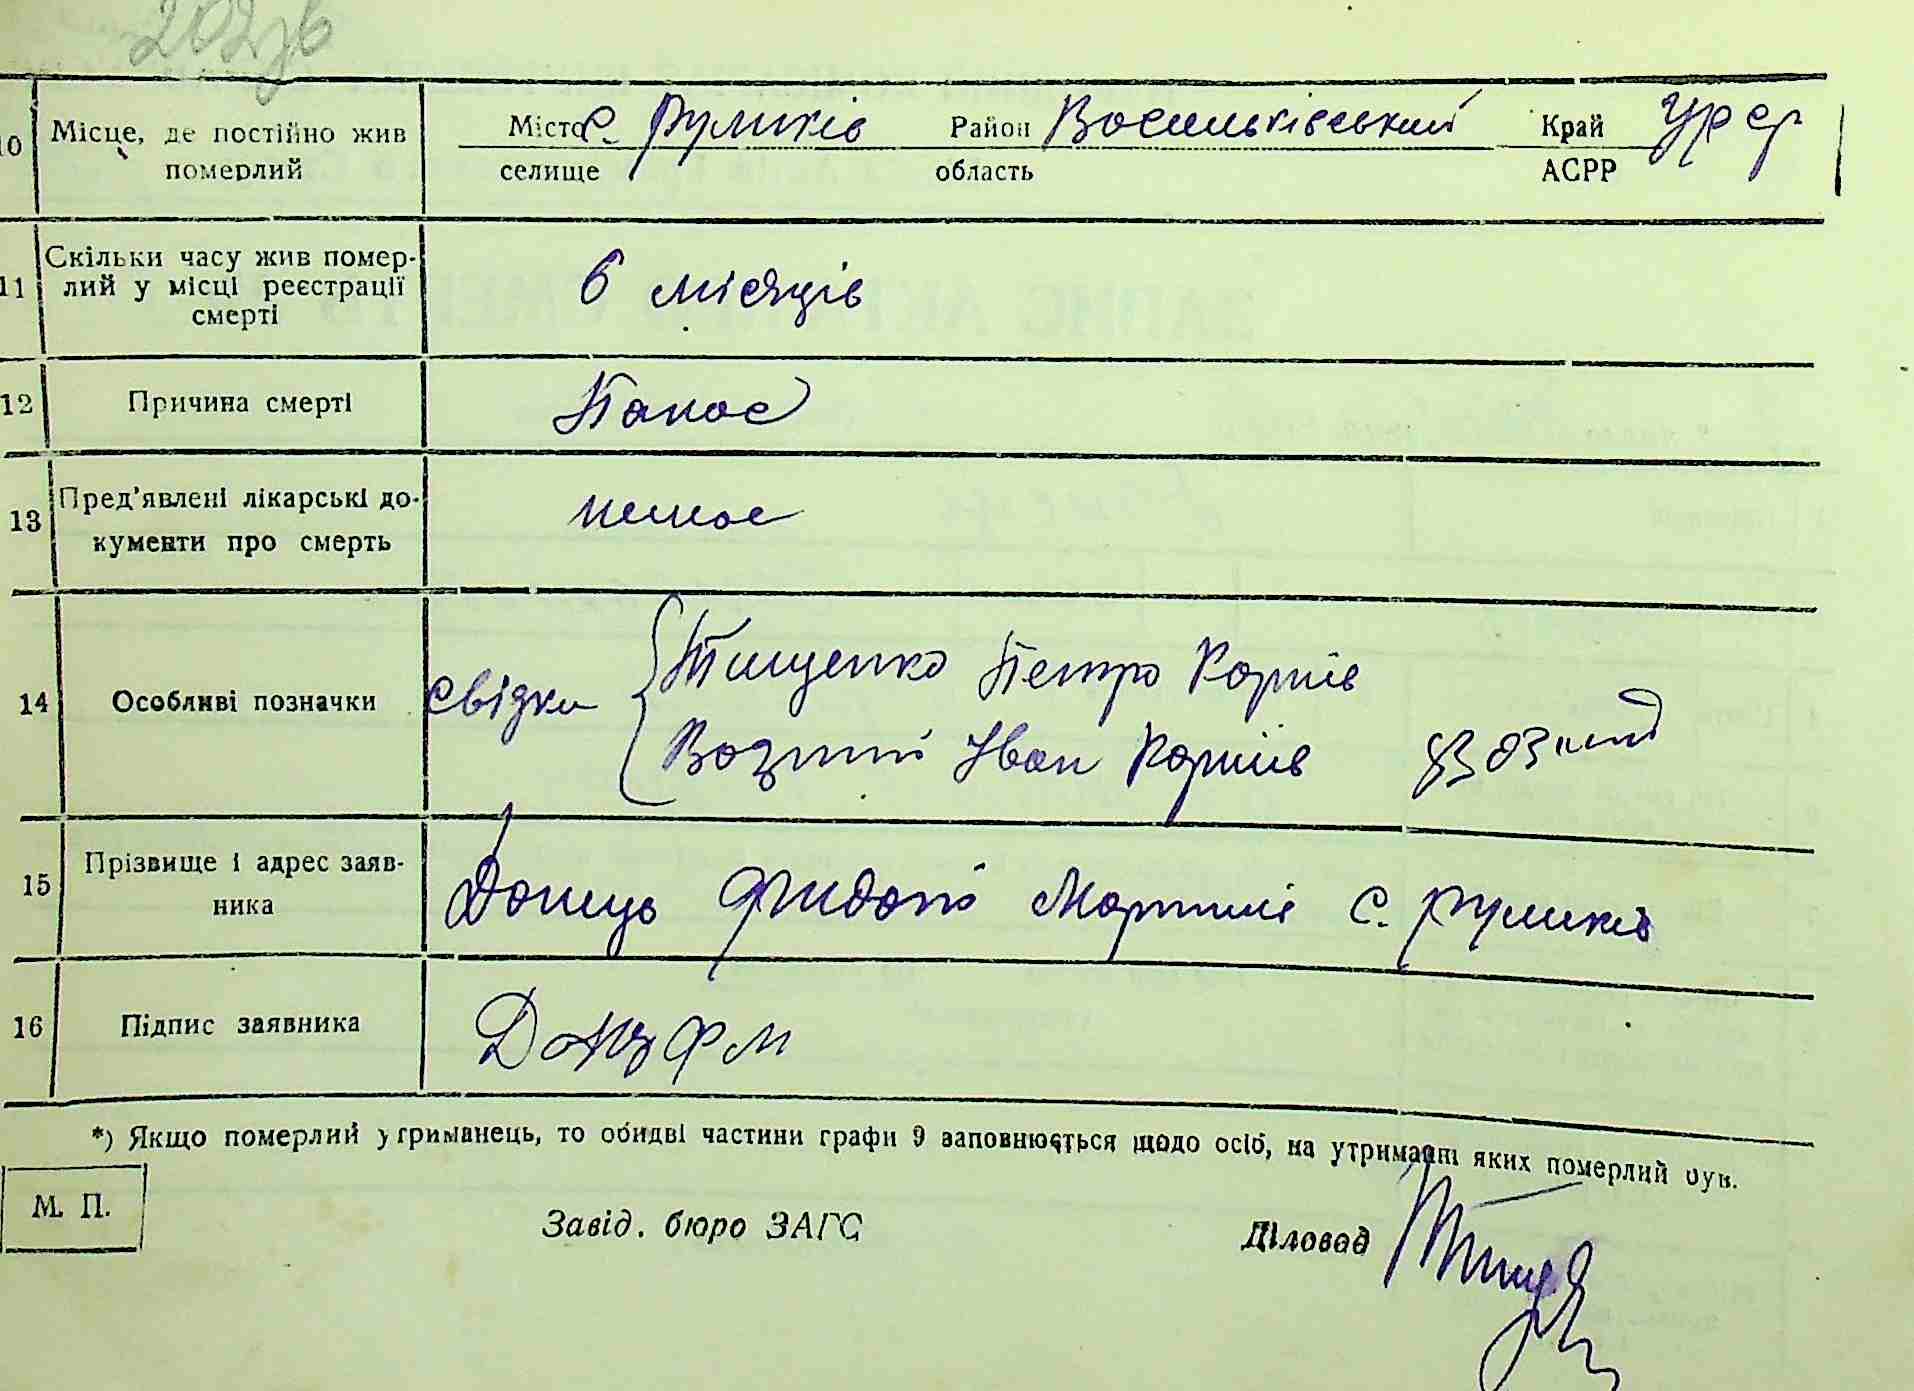 202зв
10 Місце, де постійно жив Місто с. Руликів Район Васильківський Край УРСР
померлий селище область АСРР
11 Скільки часу жив помер-
лий у місці реєстрації 6 місяців
смерті
12 Причина смерті Понос
13 Пред'явлені лікарські до- немає
кументи про смерть
14 Особливі позначки свідки Тищенко Петро Корнів
Возний Іван Корнів
15 Прізвище і адрес заяв- Донець Мартинів с. Руликів
ника
16 Підпис заявника Донц Ф М
*) Якщо померлий утриманець, то обидві частини графи 9 заповнюється щодо осіб, на утриманні яких померлий був.
М. П.
Завід. бюро ЗАГС Діловод